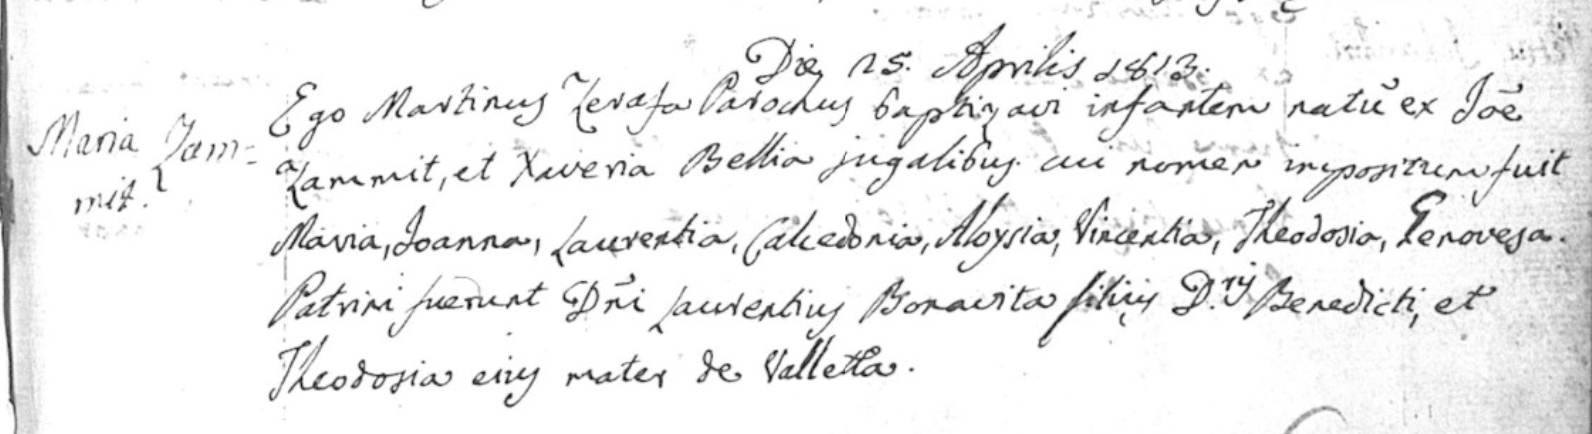 Die 25. Aprilis 1813.
Maria Zam=
mit.
Ego Martinus Zerafa Parochus baptizavi infantem natū ex Joē
Zammit, et Xaveria Bellia jugalibus cui nomen impositum fuit
Maria, Joanna, Laurentia, Calcedonia, Aloysia, Vincentia, Theodosia, Genovefa.
Patrini fuerunt Dn̄i Laurentius Bonavita filius D.ris Benedicti, et
Theodosia eius mater de Valletta.